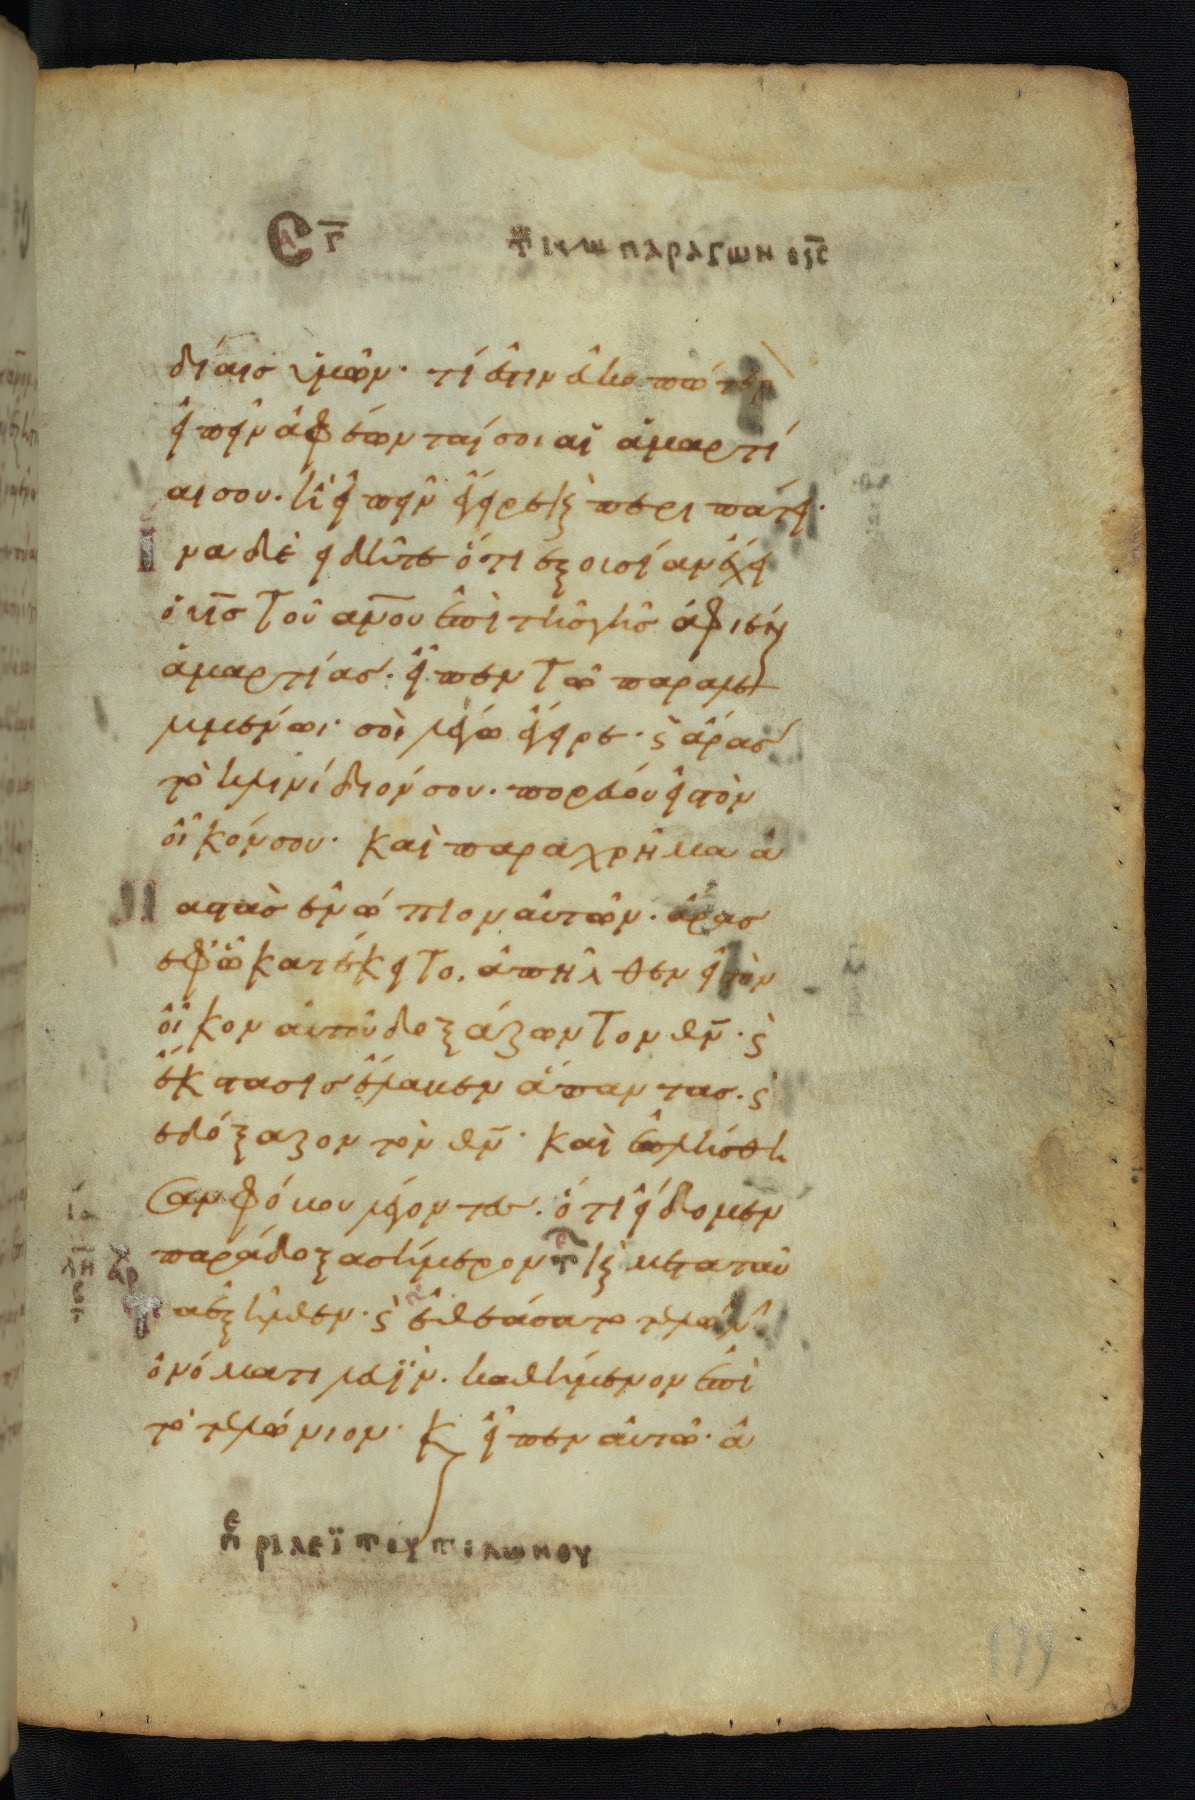 Τῶ κω παράγων ὁ ις
δίαις ὑμῶν· τί ἐστιν εὐκοπώτερον
εἰπεῖν ἀφέωνταί σοι αἱ ἁμαρτί
αι σου· ἢ εἰπεῖν ἔγειρε καὶ περιπάτει·
ἵνα δὲ εἰδῆτε ὅτι ἐξουσίαν ἔχει
ὁ υς τοῦ ανου ἐπὶ τῆς γῆς ἀφιέναι
ἁμαρτίας· εἶπεν τῶ παραλελυ
μένωι· σοὶ λέγω ἔγειρε· καὶ ἄρας
τὸ κλινίδιόν σου· πορεύου εἰς τὸν
οἶκόν σου· καὶ παραχρῆμα ἀ
ναστὰς ἐνώπιον αὐτῶν· ἄρας
ἐφ' ὧ κατέκειτο· ἀπῆλθεν εἰς τὸν
οἶκον αὐτοῦ δοξάζων τον θν· καὶ
ἔκστασις ἔλαβεν ἅπαντας· καὶ
ἐδόξαζον τὸν θν· καὶ ἐπλήσθη
σαν φόβου λέγοντες· ὅτι εἴδομεν
παράδοξα σήμερον καὶ μετὰ ταῦ
τα ἐξῆλθεν· καὶ ἐθεάσατο τελώνην
ὀνόματι λευῒν· καθήμενον ἐπὶ
τὸ τελώνιον· κ εἶπεν αὐτῶ· ἀ
περι λεϊ του τελωνου
179